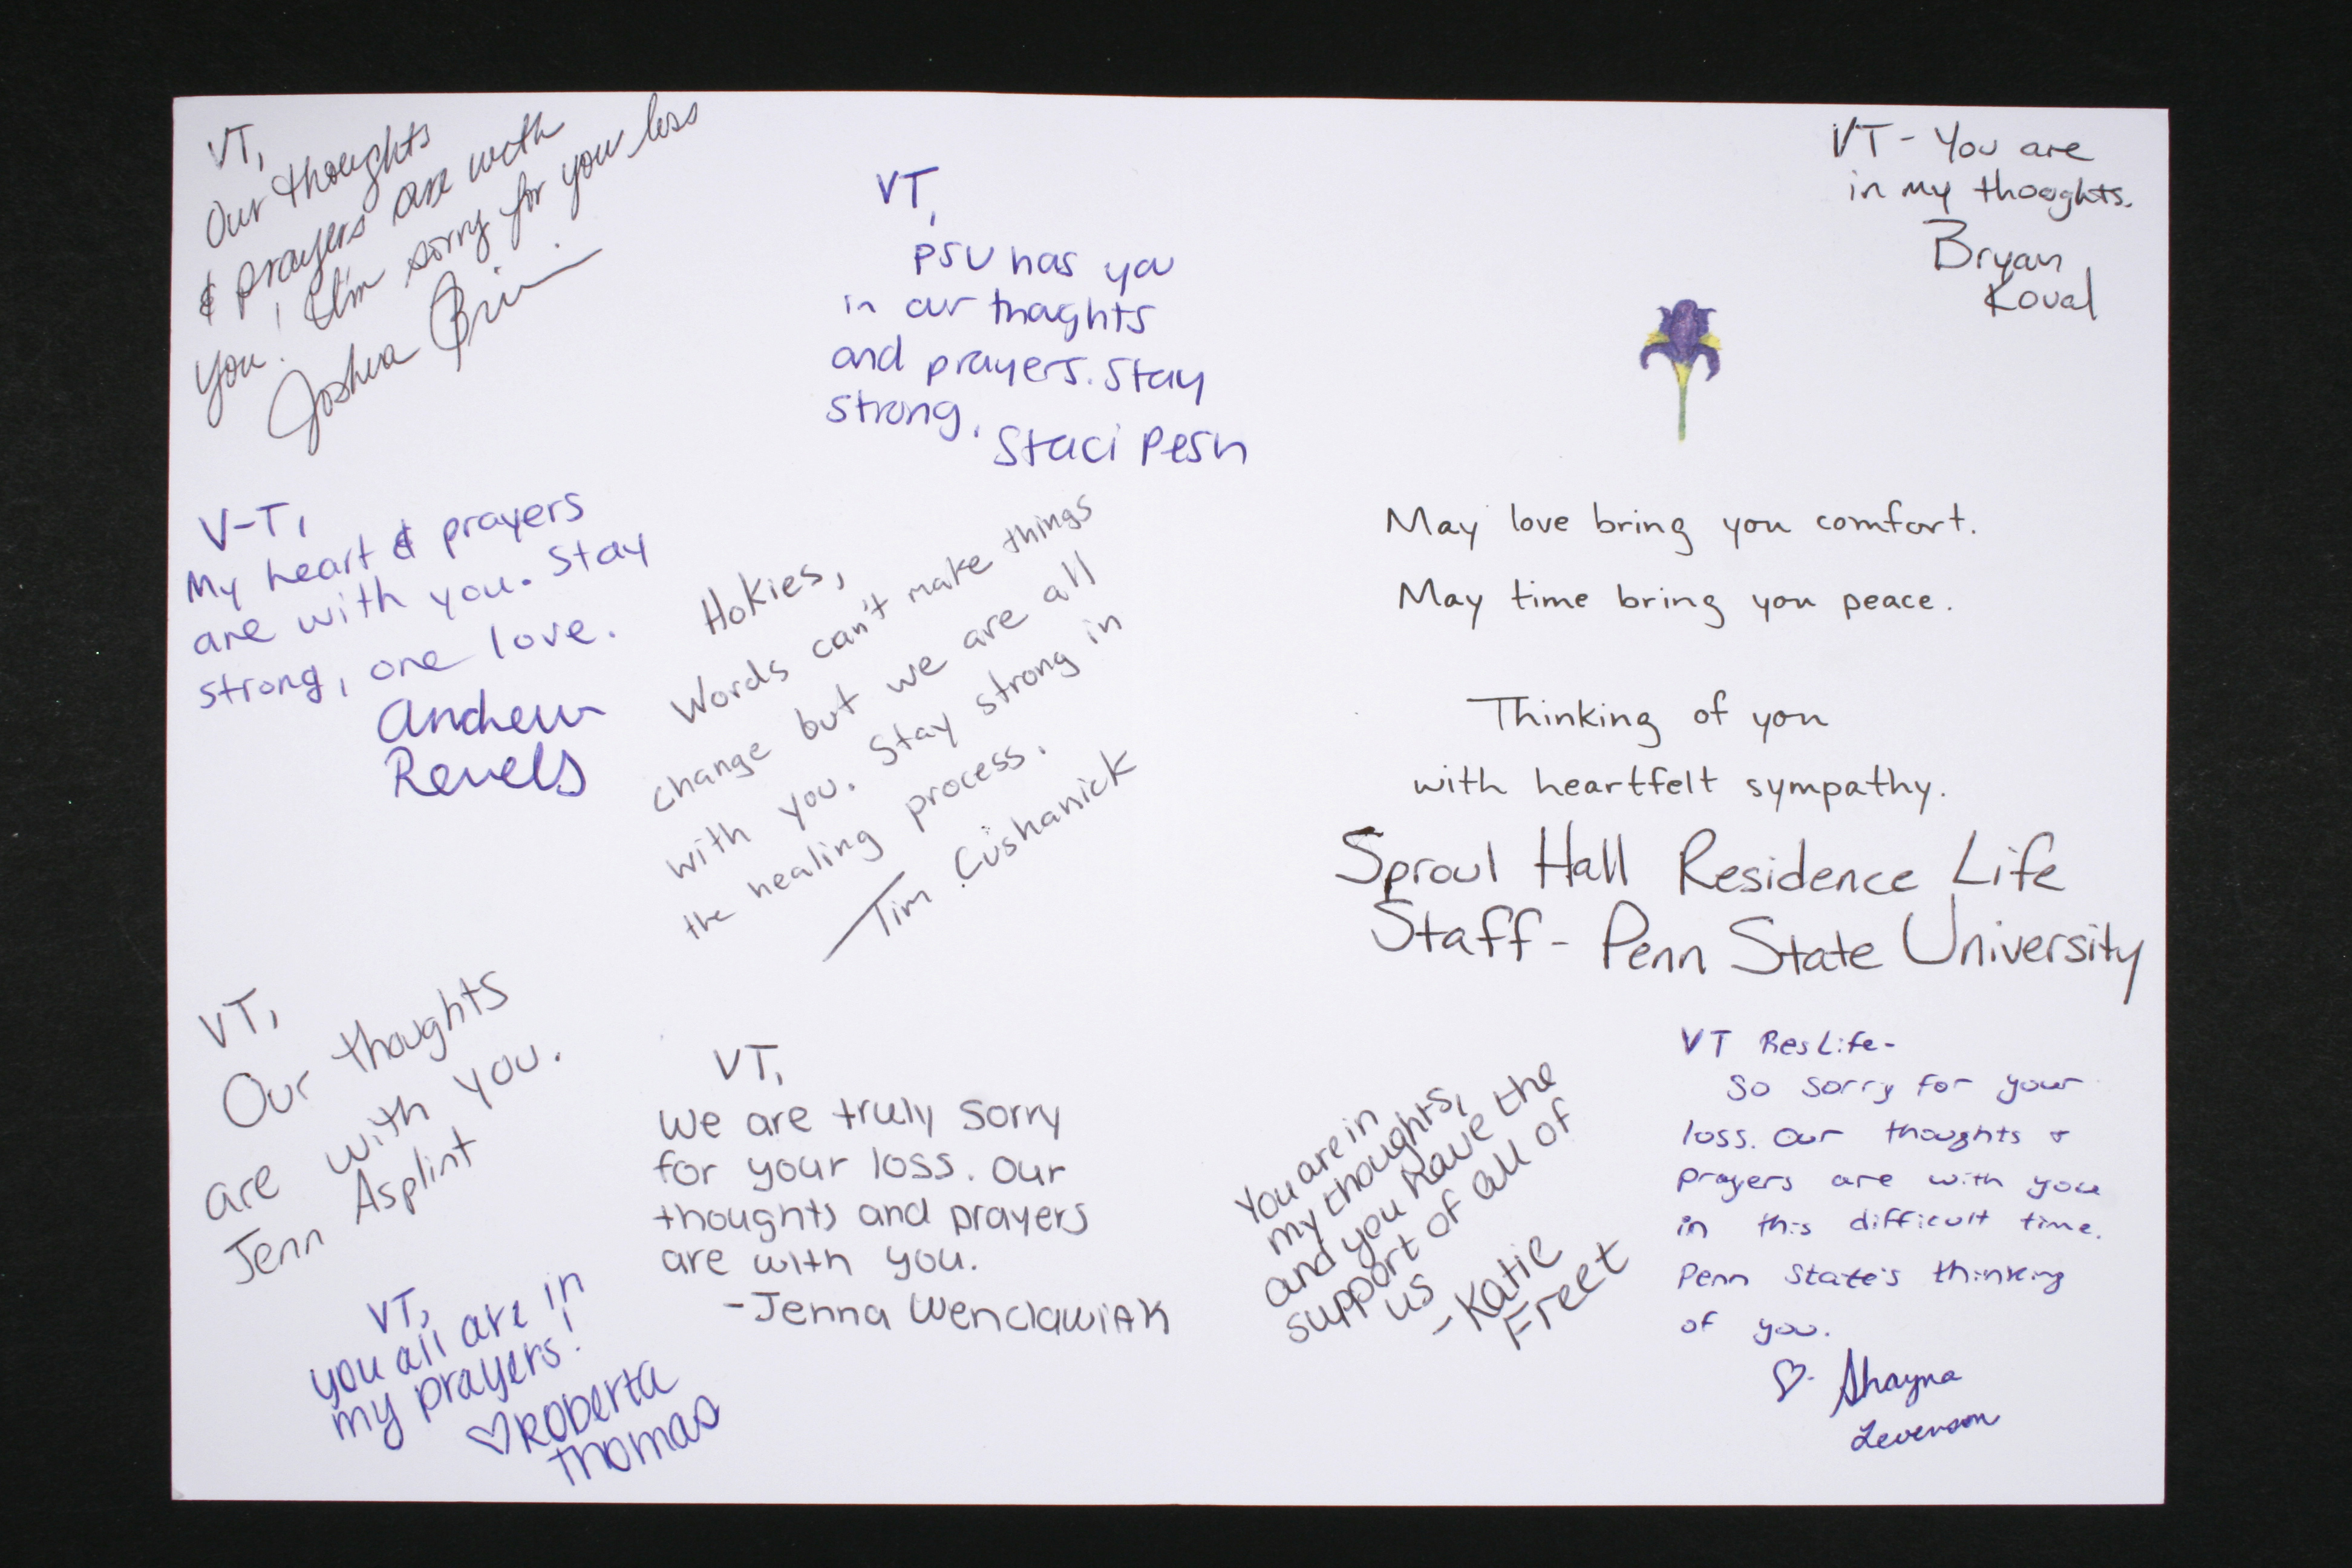 VT,
Our thoughts
& prayers are with
you! I'm sorry for your loss
Joshua
VT,
PSU has you
in our thoughts
and prayers. Stay
strong.
Staci Pesn
V-T,
My heart & prayers
are with you. Stay
strong, one love.
Andrew
Revels
Hokies,
Words can't make things
change but we are all
with you. Stay strong in
the healing process.
Tim Cushanick
VT,
Our thoughts
are with you.
Jenn Asplint
VT,
you all are in
my prayers!
♡Roberta
Thomas
VT,
We are truly sorry
for your loss. Our
thoughts and prayers
are with you.
-Jenna Wenclawiak
VT- You are
in my thoughts.
Bryan
Koval
May love bring you comfort.
May time bring you peace.
Thinking of you
with heartfelt sympathy.
Sproul Hall Residence Life
Staff- Penn State University
You are in
my thoughts,
and you have the
support of all of
us
-Katie
Freet
VT ResLife-
So sorry for your
loss. Our thoughts +
prayers are with you
in this difficult time.
Penn State's thinking
of you.
♡- Shayna
Levenson